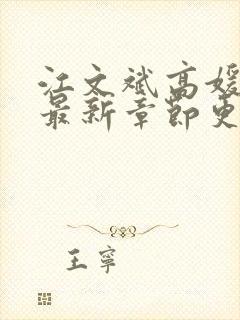 江文斌高媛
最新章节更
王寧